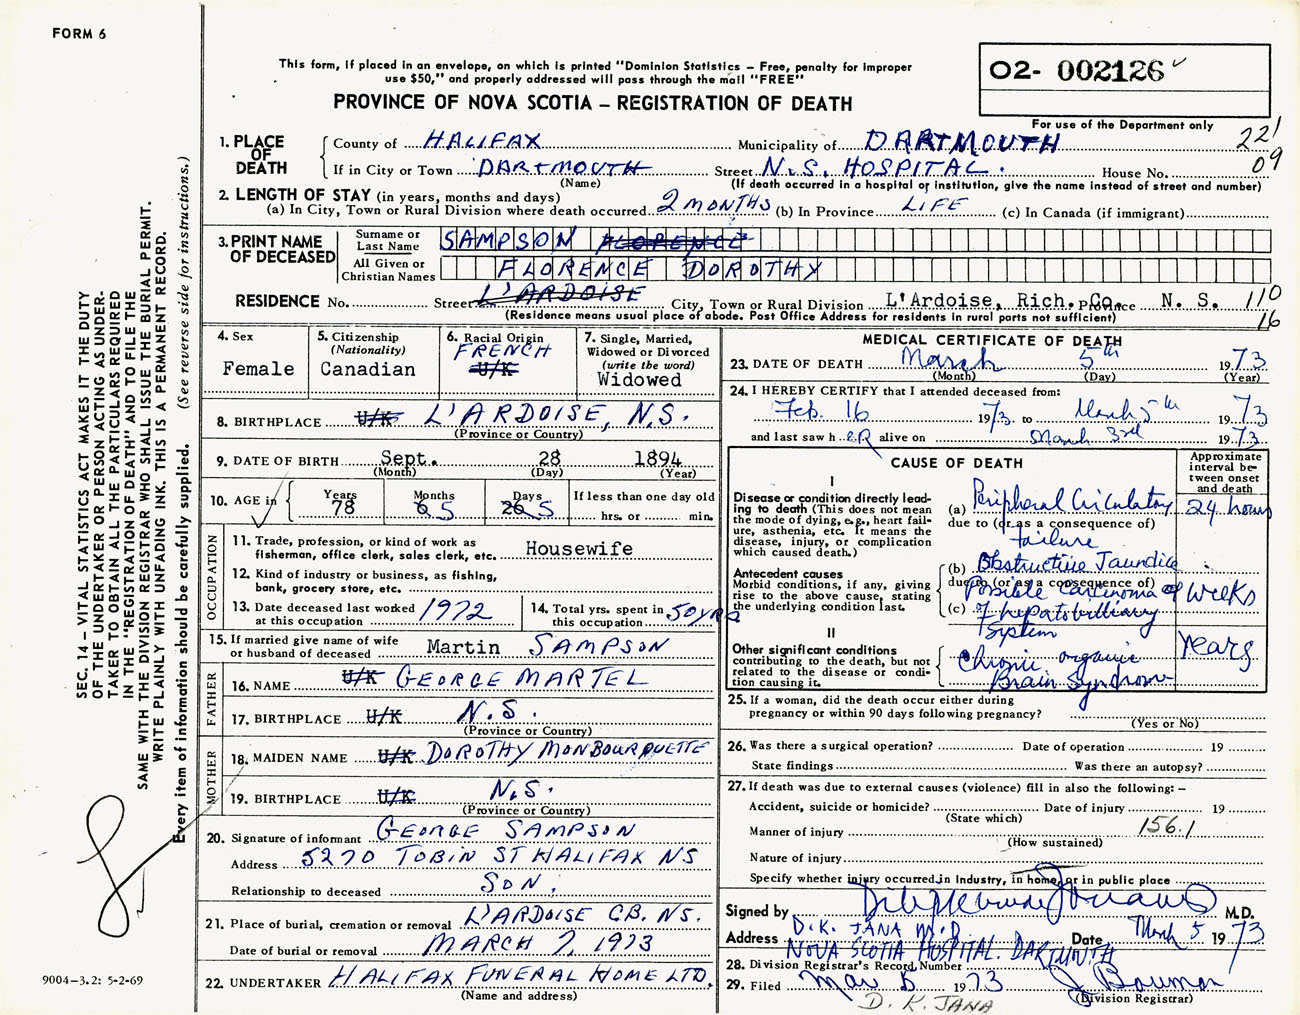 FORM 6
This form, if placed in an envelope, on which is printed "Dominion Statistics – Free, penalty for improper
use $50," and properly addressed will pass through the mail "FREE"
PROVINCE OF NOVA SCOTIA – REGISTRATION OF DEATH
O2- 002126
For use of the Department only
221
09
1. PLACE OF DEATH
County of HALIFAX Municipality of DARTMOUTH
If in City or Town DARTMOUTH Street N.S. HOSPITAL. House No.
(Name) (If death occurred in a hospital or institution, give the name instead of street and number)
2. LENGTH OF STAY (in years, months and days)
(a) In City, Town or Rural Division where death occurred 2 MONTHS (b) In Province LIFE (c) In Canada (if immigrant)
3. PRINT NAME OF DECEASED
Surname or Last Name SAMPSON FLORENCE
All Given or Christian Names FLORENCE DOROTHY
RESIDENCE No. Street L'ARDOISE City, Town or Rural Division L'Ardoise, Rich. Co. Province N. S. 110
(Residence means usual place of abode. Post Office Address for residents in rural parts not sufficient) 16
4. Sex
Female
5. Citizenship
(Nationality)
Canadian
6. Racial Origin
FRENCH
U/K
7. Single, Married,
Widowed or Divorced
(write the word)
Widowed
8. BIRTHPLACE U/K L'ARDOISE, N.S.
(Province or Country)
9. DATE OF BIRTH Sept. 28 1894
(Month) (Day) (Year)
10. AGE in
Years 78 Months 6 5 Days 26 5 If less than one day old
hrs. or min.
OCCUPATION
11. Trade, profession, or kind of work as
fisherman, office clerk, sales clerk, etc. Housewife
12. Kind of industry or business, as fishing,
bank, grocery store, etc.
13. Date deceased last worked
at this occupation 1972
14. Total yrs. spent in
this occupation 50 yrs
15. If married give name of wife
or husband of deceased Martin SAMPSON
FATHER
16. NAME U/K GEORGE MARTEL
17. BIRTHPLACE U/K N.S.
(Province or Country)
MOTHER
18. MAIDEN NAME U/K DOROTHY MONBOURQUETTE
19. BIRTHPLACE U/K N.S.
(Province or Country)
20. Signature of informant GEORGE SAMPSON
Address 5270 TOBIN ST HALIFAX NS
Relationship to deceased SON.
21. Place of burial, cremation or removal L'ARDOISE CB. NS.
Date of burial or removal MARCH 7, 1973
22. UNDERTAKER HALIFAX FUNERAL HOME LTD.
(Name and address)
MEDICAL CERTIFICATE OF DEATH
23. DATE OF DEATH March 5th 1973
(Month) (Day) (Year)
24. I HEREBY CERTIFY that I attended deceased from:
Feb. 16 1973 to March 5th 1973
and last saw her alive on March 3rd 1973
CAUSE OF DEATH
Approximate
interval be-
tween onset
and death
I
Disease or condition directly lead-
ing to death (This does not mean
the mode of dying, e.g., heart fail-
ure, asthenia, etc. It means the
disease, injury, or complication
which caused death.)
(a) Peripheral Circulatory 24 hours
due to (or as a consequence of)
failure
Antecedent causes
Morbid conditions, if any, giving
rise to the above cause, stating
the underlying condition last.
(b) Obstructive Jaundice
due to (or as a consequence of)
Possible Carcinoma of weeks
(c) of hepatobilliary
System
II
Other significant conditions
contributing to the death, but not
related to the disease or condi-
tion causing it.
Chronic organic years
Brain Syndrome
25. If a woman, did the death occur either during
pregnancy or within 90 days following pregnancy?
(Yes or No)
26. Was there a surgical operation? Date of operation 19
State findings Was there an autopsy?
27. If death was due to external causes (violence) fill in also the following: –
Accident, suicide or homicide? Date of injury 19
(State which)
Manner of injury 156.1
(How sustained)
Nature of injury
Specify whether injury occurred in industry, in home, or in public place
Signed by M.D.
D.K. JANA M.D
Address NOVA SCOTIA HOSPITAL. DARTMOUTH Date March 5 1973
28. Division Registrar's Record Number
29. Filed Mar 5 1973 J Bauman
(Division Registrar)
D. K. JANA
SEC. 14 – VITAL STATISTICS ACT MAKES IT THE DUTY
OF THE UNDERTAKER OR PERSON ACTING AS UNDER-
TAKER TO OBTAIN ALL THE PARTICULARS REQUIRED
IN THE "REGISTRATION OF DEATH" AND TO FILE THE
SAME WITH THE DIVISION REGISTRAR WHO SHALL ISSUE THE BURIAL PERMIT.
WRITE PLAINLY WITH UNFADING INK. THIS IS A PERMANENT RECORD.
Every item of information should be carefully supplied. (See reverse side for instructions.)
9004–3.2: 5-2-69